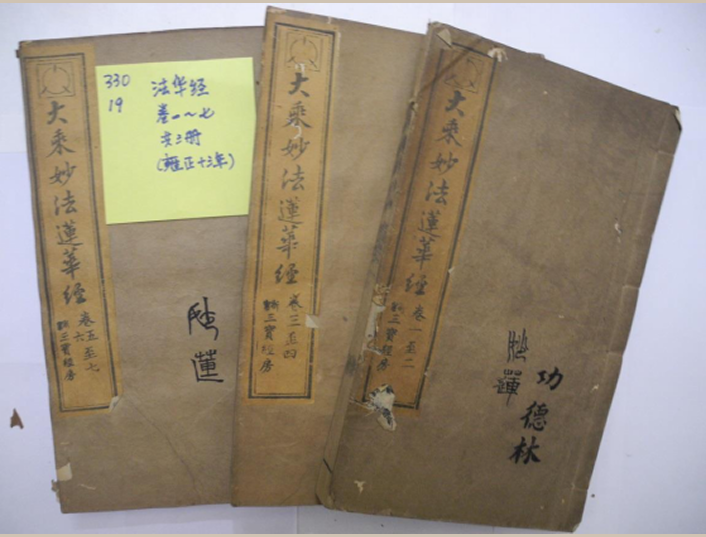 330
19
法华经
卷一～七
共三册
(雍正十三年)
大乘妙法蓮華經
卷五至七
六
三寶經房
蓮
大乘妙法蓮華經
卷三至四
三寶經房
大乘妙法蓮華經
卷一至二
三寶經房
功德林
蓮